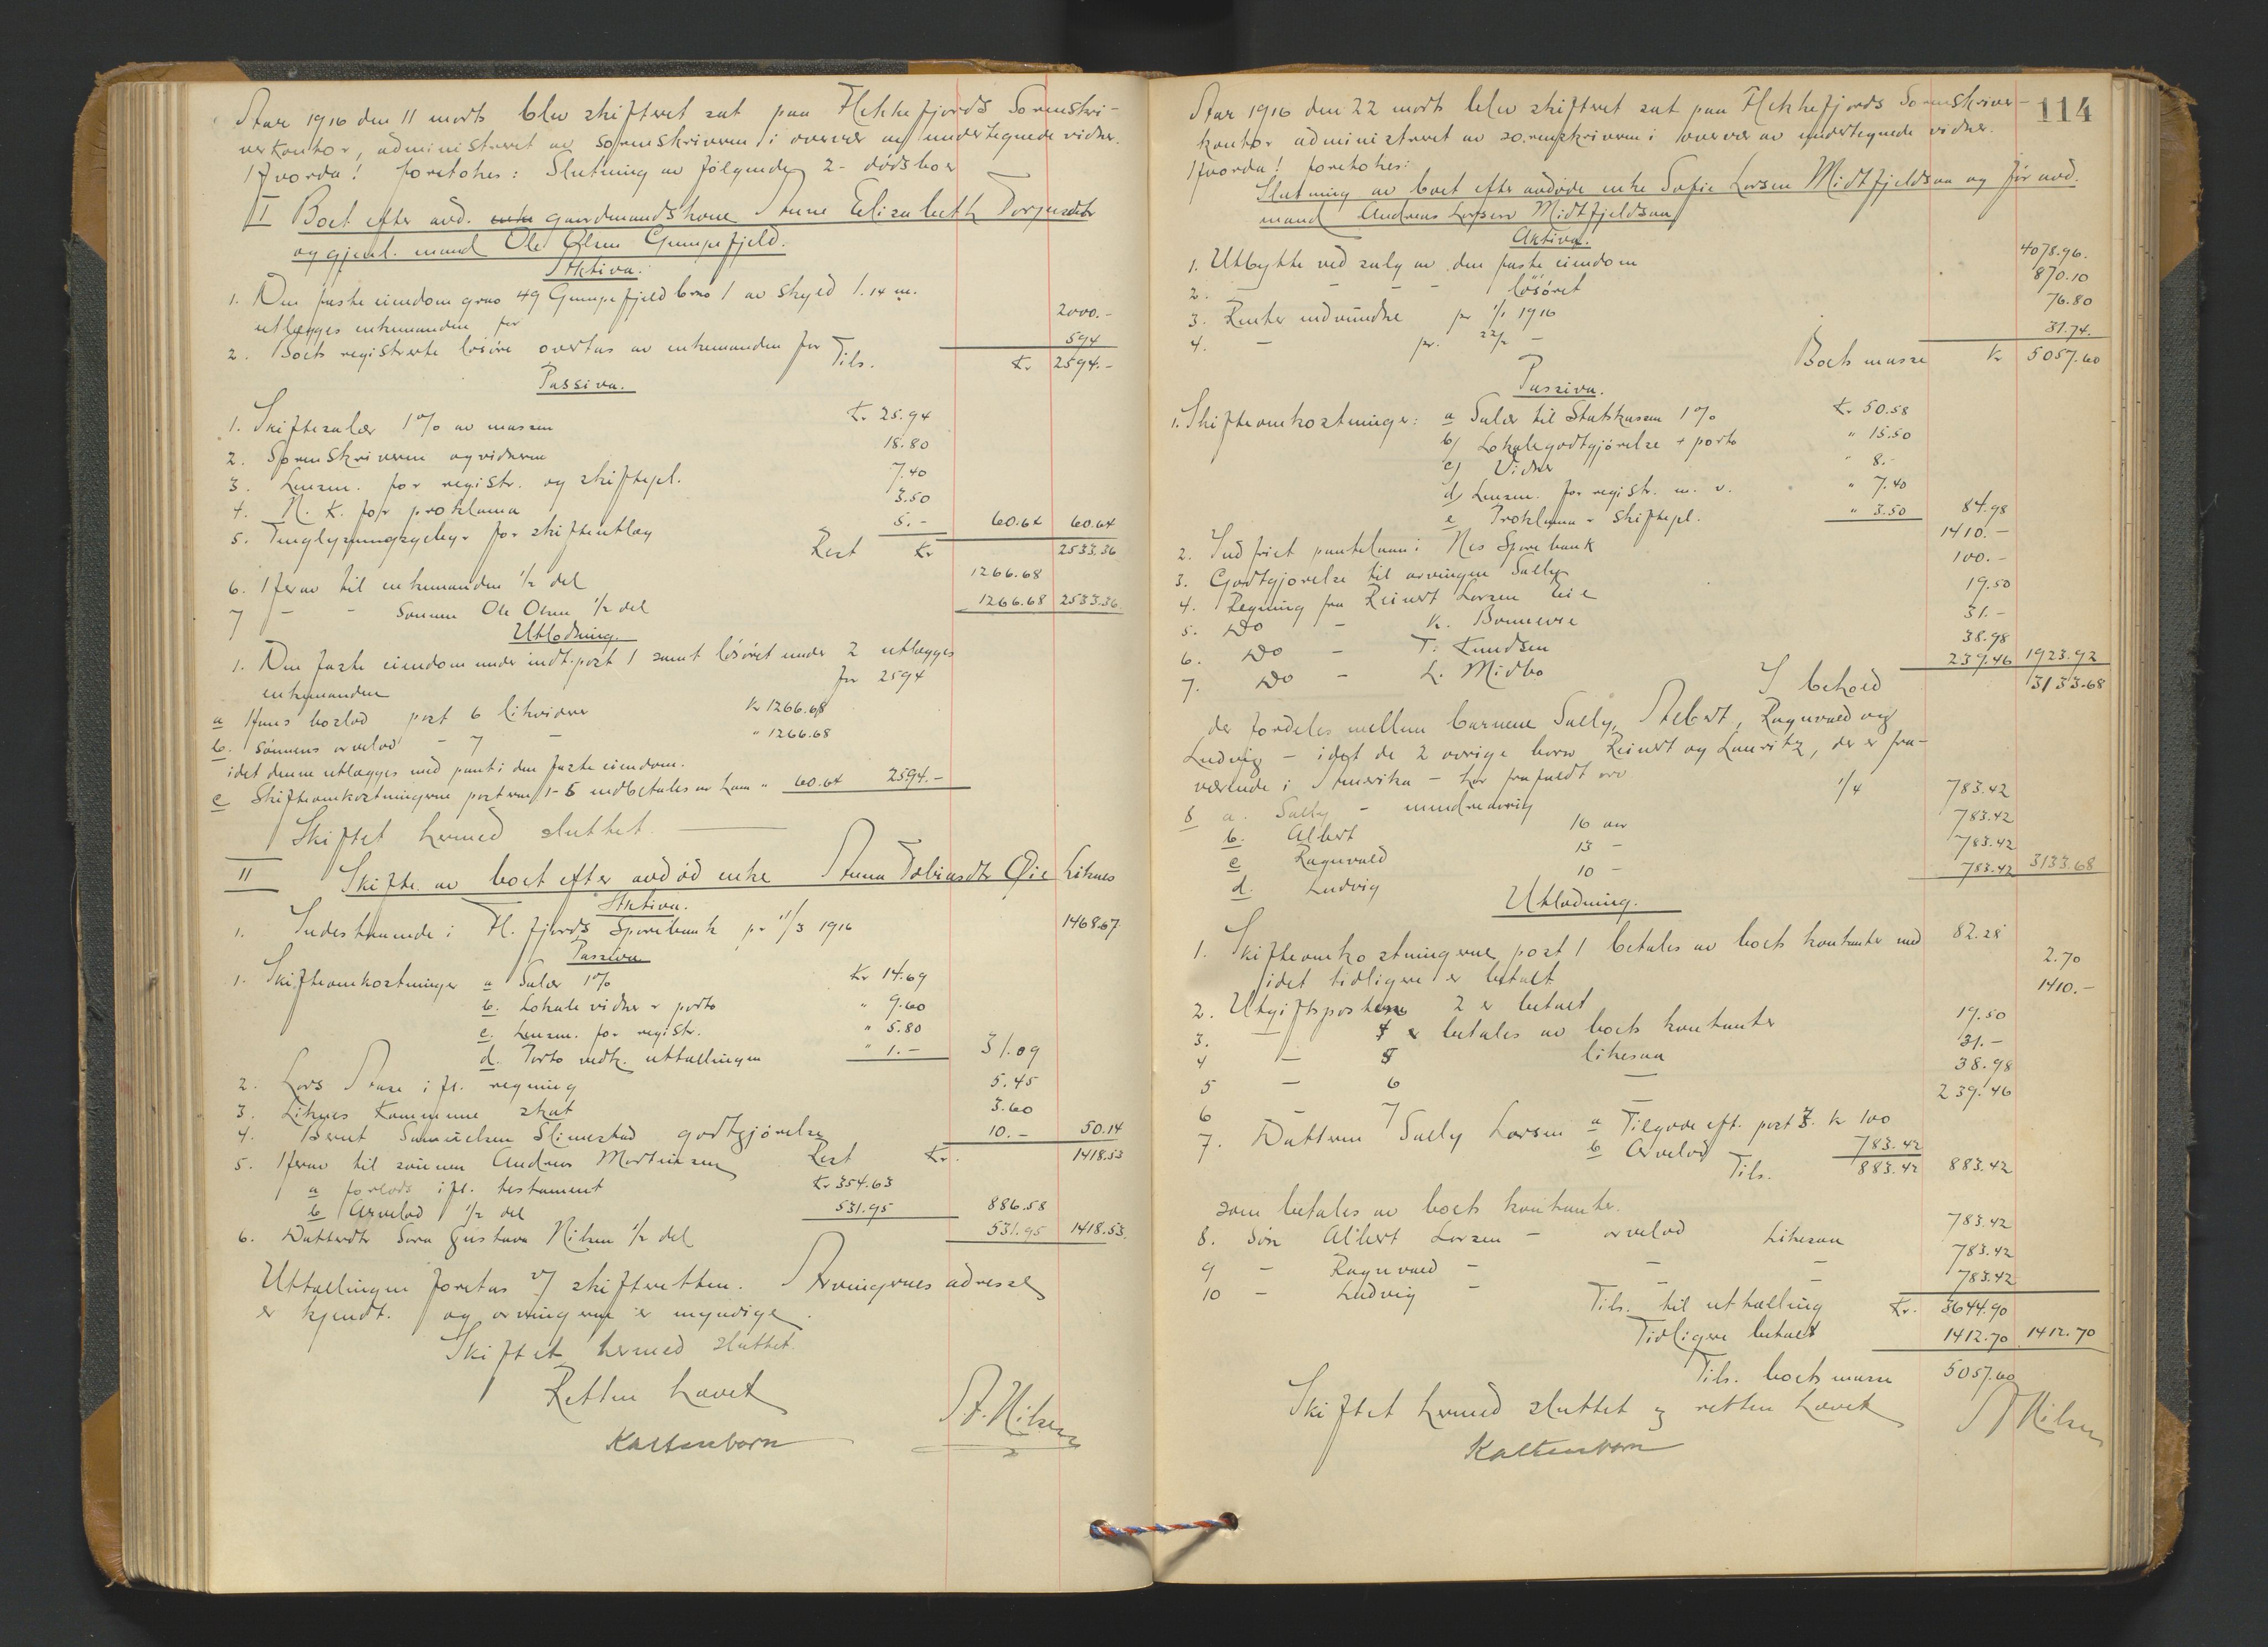 Aar 1916 den 11 marts blev skifteret sat paa Flekkefjords Sorenskri-
verkontor, administreret av sorenskriveren i overvær av undertegnede vidner.
Hvorda! foretokes: Slutning av følgende 2 - dødsboer
I Boet efter avd. enke gaardmandskone Anne Elisabeth Torjusdtr
og gjenl. mand Ole Olsen Gumpefjeld.
Aktiva.
1. Den faste eiendom gno 49 Gumpefjeld bno 1 av skyld 1.14 m.
utlægges enkemanden for 2000.-
2. Boets registrerte løsøre overtas av enkemanden for 594
Tils. Kr. 2594.-
Passiva.
1. Skiftesalær 1% av massen Kr. 25.94
2. Sorenskriveren og vidnerne 18.80
3. Lensm. for registr. og skiftepl. 7.40
4. N. K. for proklama 3.50
5. Tinglysningsgebyr for skifteutlæg 5.- 60.64 60.64
Rest Kr 2533.36
6. Herav til enkemanden 1/2 del 1266.68
7 - - Sønnen Ole Olsen 1/2 del 1266.68 2533.36.
Utlodning.
1. Den faste eiendom under indt. post 1 samt løsøret under 2 utlægges
enkemanden for 2594
a Hans boslod post 6 likvideres Kr 1266.68
b. sønnens arvelod - 7 - " 1266.68
idet denne utlægges med pant i den faste eiendom.
c Skifteomkostningerne posterne 1-5 indbetales av ham " 60.64 2594.-
Skiftet hermed sluttet.
II Skifte av boet efter avdød enke Anna Tobiasdtr Øie Liknes
Aktiva.
1. Indestaaende i Fl. fjords Sparebank pr 11/3 1916 1468.67
Passiva
1. Skifteomkostninger a Salær 1% Kr 14.69
b. Lokale vidner & porto " 9.60
c. Lensm. for registr. " 5.80
d. Porto vedk. uttællingen " 1.- 31.09
2. Lars Aase i fl. regning 5.45
3. Liknes Kommune skat 3.60
4. Bernt Samuelsen Slimestad godtgjørelse 10.- 50.14
Rest Kr. 1418.53
5. Herav til sønnen Andreas Mortensen
a forlods ifl. testament Kr 354.63
b Arvelod 1/2 del 531.95 886.58
6. Datterdtr Sara Gustava Nilsen 1/2 del 531.95 1418.53.
Uttællingen foretas v/ skifteretten. Arvingernes adresse
er kjendt. og arvingerne er myndige.
Skiftet hermed sluttet.
Retten hævet
Kaltenborn A.F. Nilsen
114
Aar 1916 den 22 marts blev skifteret sat paa Flekkefjords Sorenskriver-
kontor administreret av sorenskriveren i overvær av undertegnede vidner.
Hvorda! foretokes:
Slutning av boet efter avdøde enke Sofie Larsen Midtfjeldsaa og før avd.
mand Andreas Larsen Midtfjeldsaa
Aktiva.
1. Utbytte ved salg av den faste eiendom 4078.96.
2. - - - - løsøret 870.10
3. Renter indvundne pr 1/1 1916 76.80
4. - pr. 22/3 - 31.74.
Boets masse Kr 5057.60
Passiva.
1. Skifteomkostninger: a Salær til Statskassen 1% Kr. 50.58
b) Lokalegodtgjørelse + porto " 15.50
c) Vidner " 8.-
d) Lensm. for registr. m. v. " 7.40
e Proklama & skiftepl. " 3.50 84.98
2. Indfriet pantelaan i Nes Sparebank 1410.-
3. Godtgjørelse til arvingen Sally 100.-
4. Regning fra Reinert Larsen Eie 19.50
5. Do - K. Bonnevie 31.-
6. Do - T. Knudsen 38.98
7. Do - L. Midbø 239.46 1923.92
I behold 3133.68
der fordeles mellem barnene Sally, Albert, Ragnvald og
Ludvig - idet de 2 øvrige barn Reinert og Lauritz, der er fra-
værende i Amerika - har frafaldt arv
8 a. Sally - mindreaarig 1/4 783.42
b. Albert 16 aar 783.42
c Ragnvald 13 - 783.42
d. Ludvig 10 - 783.42 3133.68
Utlodning.
1. Skifteomkostningerne post 1 betales av boets kontanter med 82.28
idet tidligere er betalt 2.70
2. Utgiftsposten 2 er betalt 1410.-
3. - 4 betales av boets kontanter 19.50
4 - 5 likesaa 31.-
5 - 6 - 38.98
6 - 7 - 239.46
7. Datteren Sally Larsen a Tilgode eft. post 3. kr 100
b Arvelod 783.42
Tils. 883.42 883.42
som betales av boets kontanter.
8. Søn Albert Larsen - arvelod likesaa 783.42
9 - Ragnvald - - - 783.42
10 - Ludvig - - 783.42
Tils. til uttælling Kr. 3644.90
Tidligere betalt 1412.70 1412.70
Tils. boets masse 5057.60
Skiftet hermed sluttet og retten hævet
Kaltenborn A F Nilsen